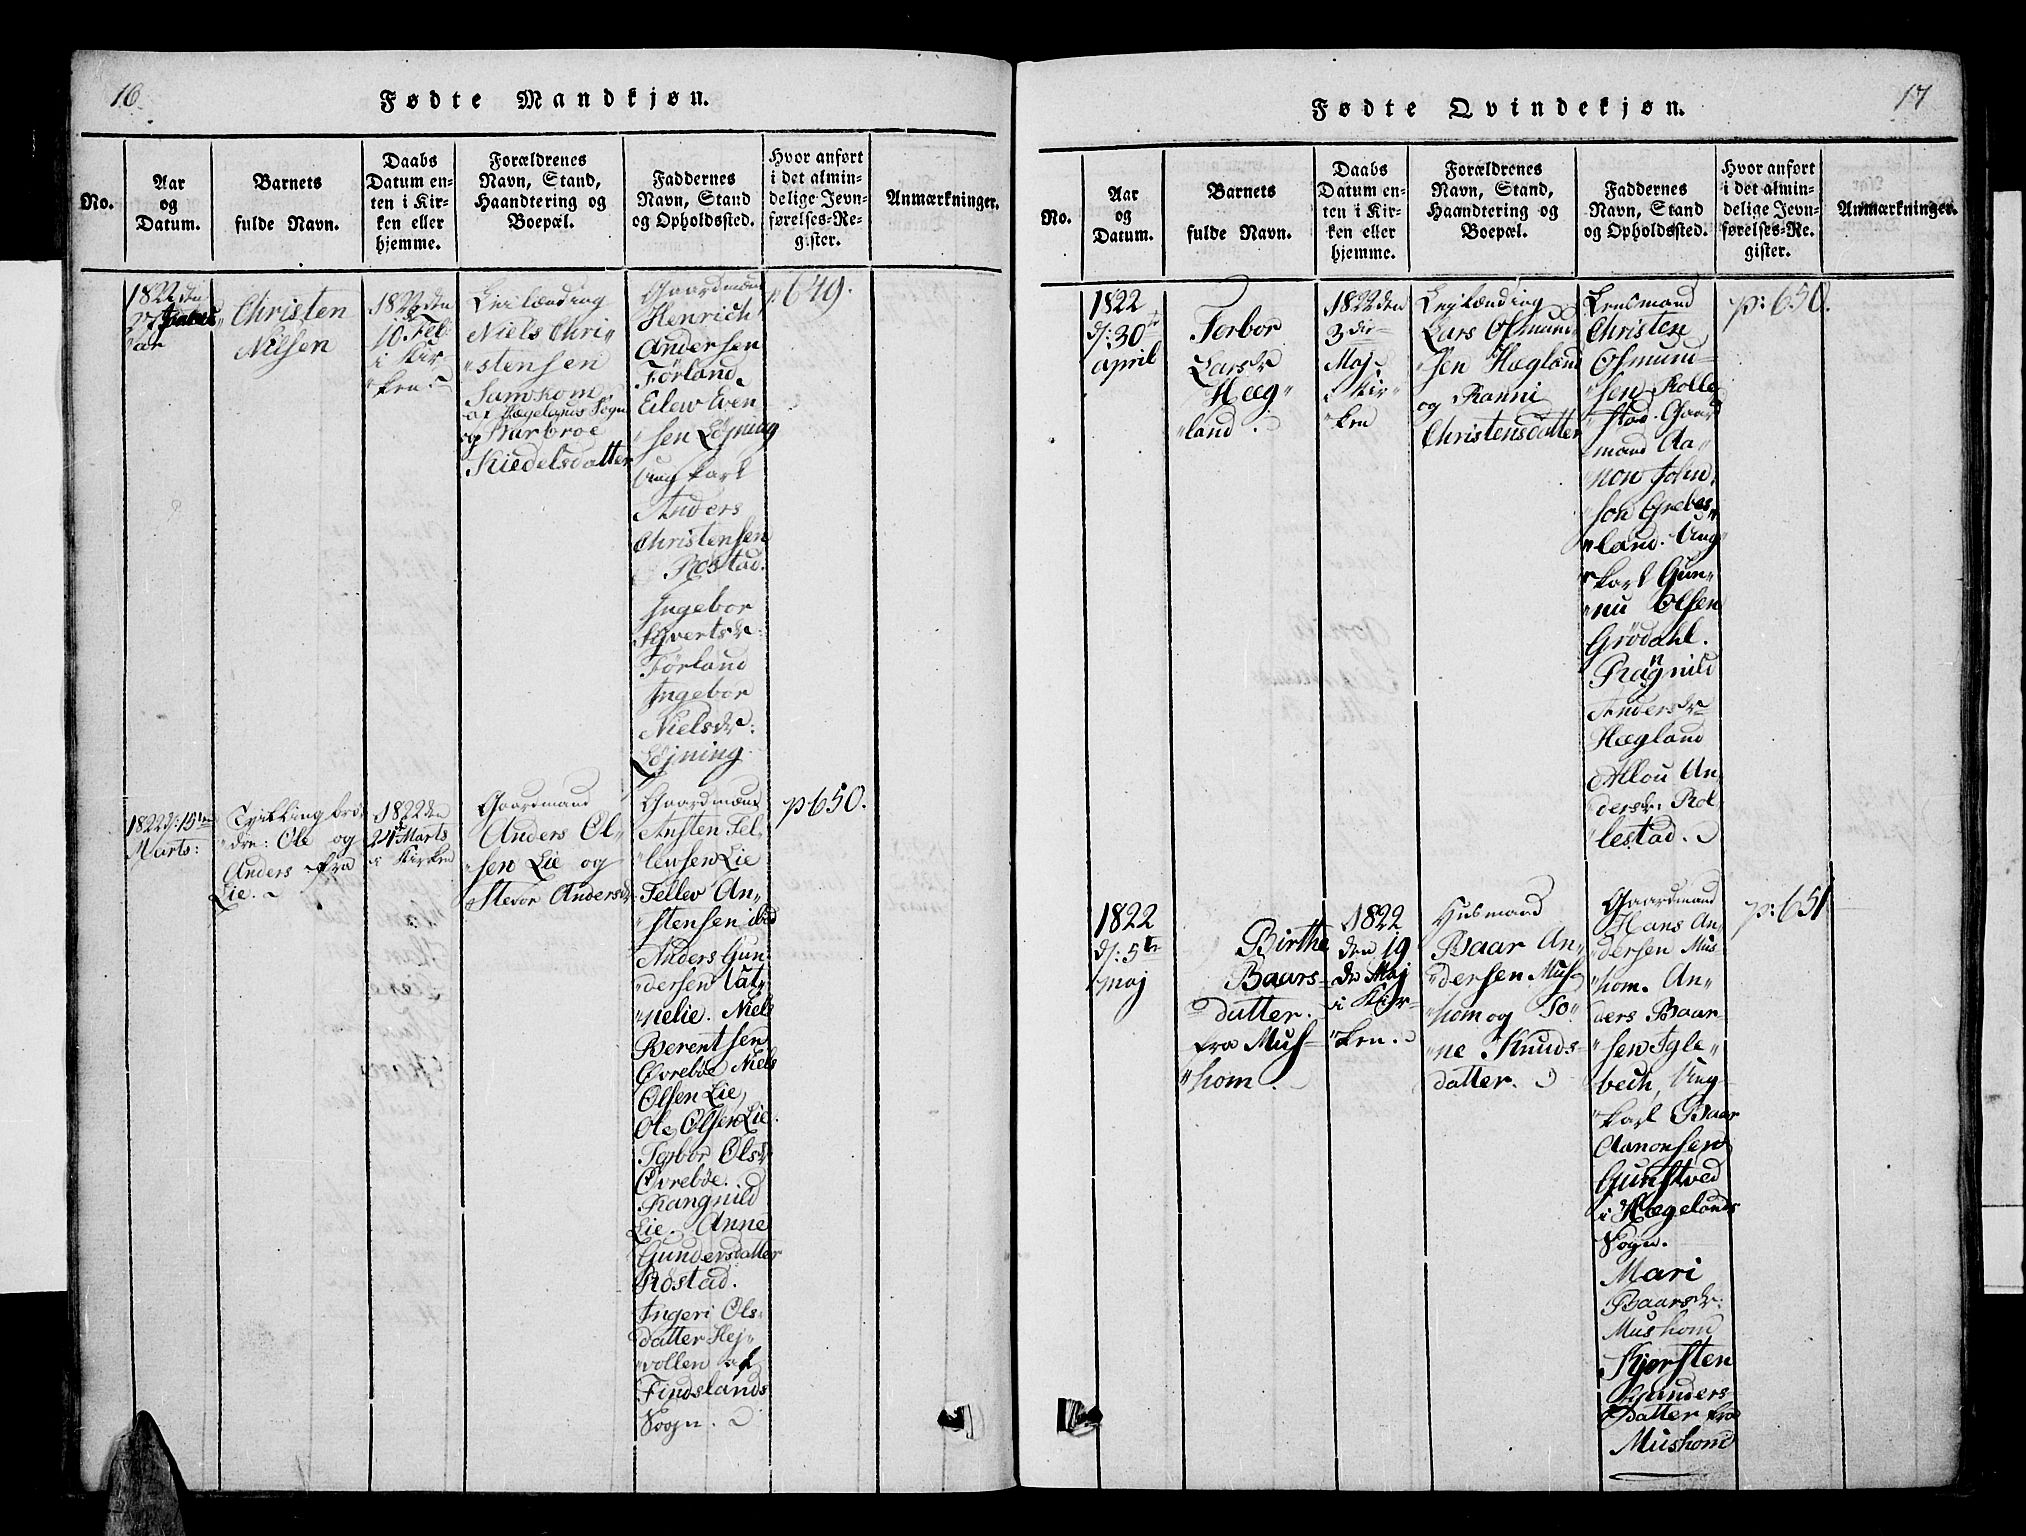 16.
Fødte Mandkjøn.
No.
Aar
og
Datum.
Barnets
fulde Navn.
Daabs
Datum en-
ten i Kir-
ken eller
hjemme.
Forældrenes
Navn, Stand,
Haandtering og
Boepæl.
Faddernes
Navn, Stand
og Opholdssted.
Hvor anført
i det almin-
delige Jevn-
førelses-Re-
gister.
Anmærkninger.
1822 den
27 Janu
ar
Christen
Nilsen
1822 den
10. Feb
i Kir-
"ken.
Leilænding
Niels Chri-
"stensen
Samkom,
af Hægelands Sogn
og Barbroe
Kiedelsdatter
Gaardmænd
Henrich
Andersen
Førland.
Eilew Even
"sen Løjning
Ung karl
Anders
Christensen
Røstad.
Ingebor
Syvertsdr:
Førland
Ingebor
Nielsdr:
Løjning
p 649.
1822 d: 15de
Marts:
Tvillingbrö-
"dre: Ole og
Anders fra
Lie.
1822 den
24 Marts
i Kirken
Gaardmand
Anders Ol-
"sen Lie og
Sievor Andersdr
Gaardmænd
Ansten Tel-
"lewsen Lie
Tellev An-
"stensen ibid
Anders Gun-
"dersen Vat-
"nelie. Niels
Berentsen
Øvrebøe Niels
Olsen Lie,
Ole Olsen Lie.
Torbor Olsdr
Øvrebøe.
Rangnild
Lie. Anne
Gundersdatter
Røstad.
Ingeri Ols-
datter Hej-
"vollen af
Findslands
Sogn.
p 650.
17
Fødte Qvindekjøn.
No.
Aar
og
Datum.
Barnets
fulde Navn.
Daabs
Datum en-
ten i Kir-
ken eller
hjemme.
Forældrenes
Navn, Stand,
Haandtering og
Boepæl.
Faddernes
Navn, Stand
og Opholdssted.
Hvor anført
i det almin-
delige Jevn-
førelses-Re-
gister.
Anmærkninger.
1822
d: 30te
april
Torbor
Larsdr
Hæg-
"land.
1822 den
3die
Maj
i Kir-
"ken
Lejlænding
Lars Osmund
"sen Hægland
og Ranni
Christensdatter
Lensmand
Christen
Osmund-
"sen Rolle
"stad. Gaard
mand Aa-
"non John-
"son Grebes-
"land. Ung-
"karl Gun-
"nu Olsen
Grødahl.
Ragnild
Andersdr
Hægland
Allou An-
dersdr: Rol
"lestad.
p: 650.
1822
d: 5te
maj
Birthe
Baars-
datter.
fra Mus-
"hom.
1822
den 19
de Maj
i Kir-
"ken.
Husmand
Baar An-
"dersen Mus-
"hom og To-
"ne Knuds-
datter.
Gaardmand
Hans An-
"dersen Mus-
hom. An-
"ders Baar-
"sen Igle-
bech, Ung-
"karl Baar
Aanonsen
Gunstved
i Hægelands
Sogn.
Mari
Baarsdr:
Mushom
Kjersten
Gunders
Datter fra
Mushom
p: 651